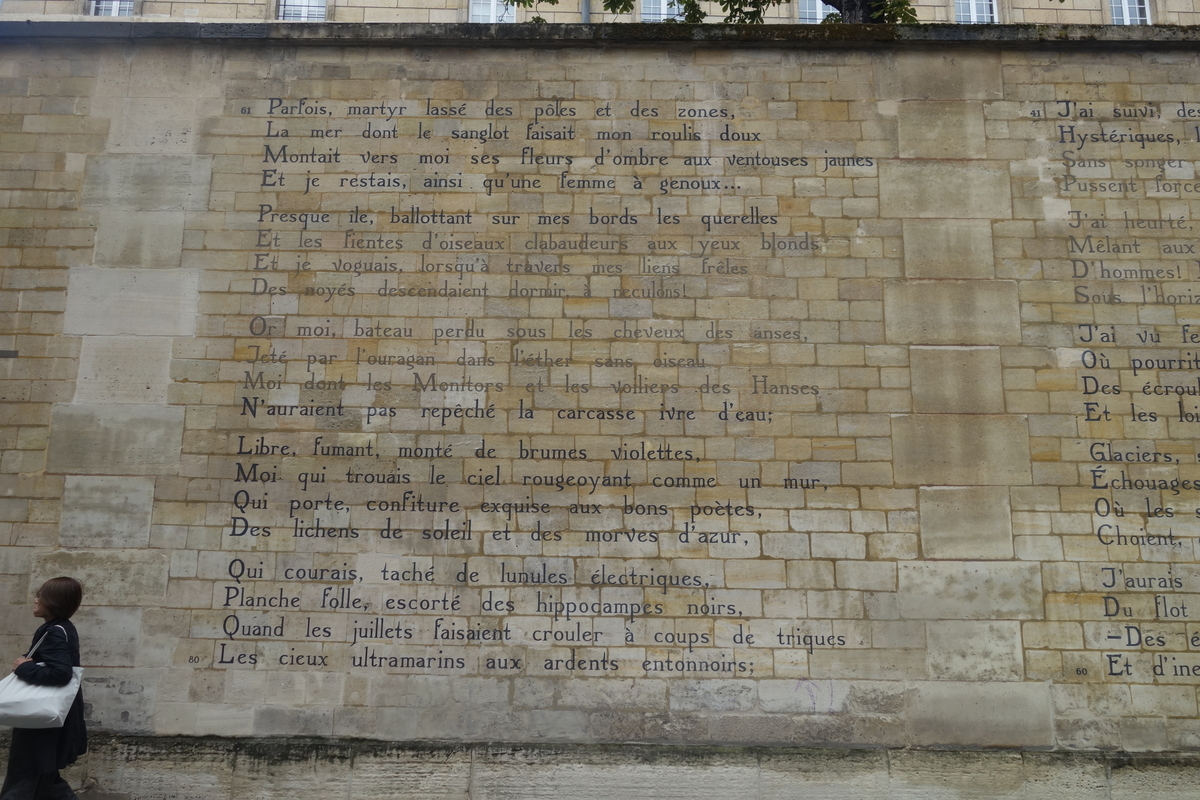 61 Parfois, martyr lassé des pôles et des zones,
La mer dont le sanglot faisait mon roulis doux
Montait vers moi ses fleurs d'ombre aux ventouses jaunes
Et je restais, ainsi qu'une femme à genoux...
Presque ile, ballottant sur mes bords les querelles
Et les fientes d'oiseaux clabaudeurs aux yeux blonds
Et je voguais, lorsqu'à travers mes liens frêles
Des noyés descendaient dormir à reculons!
Or moi, bateau perdu sous les cheveux des anses,
Jeté par l'ouragan dans l'éther sans oiseau
Moi dont les Monitors et les voiliers des Hanses
N'auraient pas repêché la carcasse ivre d'eau;
Libre, fumant, monté de brumes violettes,
Moi qui trouais le ciel rougeoyant comme un mur,
Qui porte, confiture exquise aux bons poètes,
Des lichens de soleil et des morves d'azur,
Qui courais, taché de lunules électriques,
Planche folle, escorté des hippocampes noirs,
Quand les juillets faisaient crouler à coups de triques
80 Les cieux ultramarins aux ardents entonnoirs;
41 J'ai suivi, des
Hystériques,
Sans songer
Pussent force
J'ai heurté,
Mêlant aux
D'hommes!
Sous l'horiz
J'ai vu fe
Où pourrit
Des écroul
Et les loi
Glaciers, s
Échouages
Où les s
Choient,
J'aurais
Du flot
—Des é
60 Et d'ine